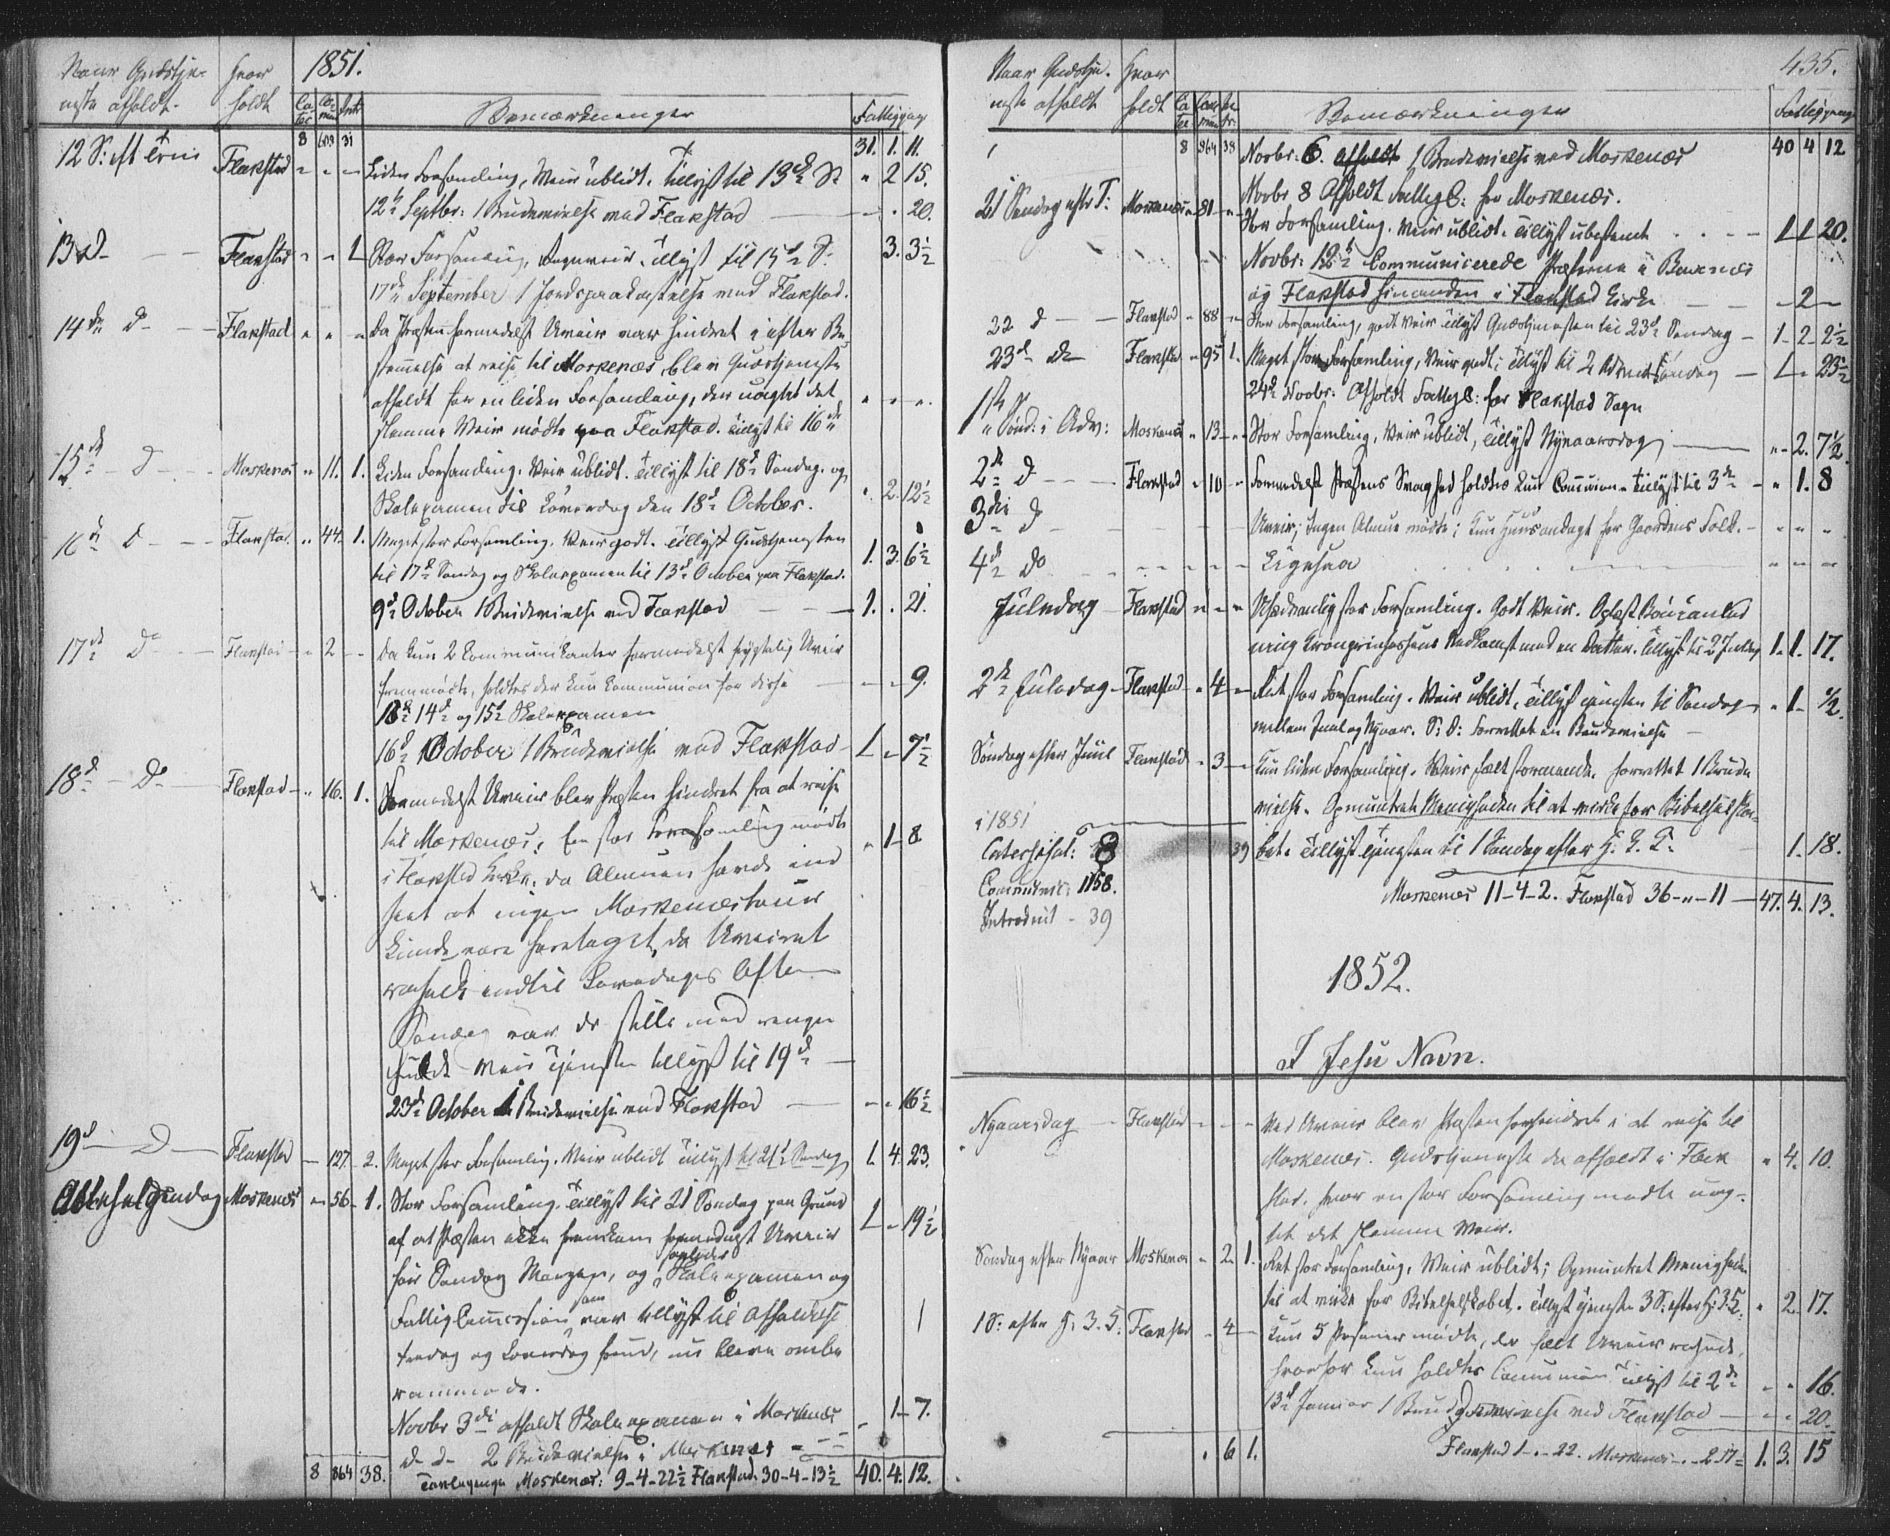 Naar Gudstje- Hvor 1851.
neste afholdt. holdt Ca- Co- Intr
tec mun Bemærkninger Fattigpenge
8 609 31 31. 1. 11.
12 S: eft Trin Flakstad " - - Liden Forsamling, Veir ublidt. Tillyst til 13de S: " 2 15.
12te Septbr: 1 Brudevielse ved Flakstad - - . 20.
13de D - - Flakstad - - 1 Stor Forsamling, Regnveir. Tillyst til 15de S: 3. 3½
17de September 1 Jordspaakastelse ved Flakstad.
14de D - - Flakstad " " - Da Præsten formedelst Uveir var hindret i efter Be-
stemmelse at reise til Moskenæs, blev Gudstjeneste
afholdt for en liden Forsamling, der uagtet det " - "
slemme Veir mødte paa Flakstad. Tillyst til 16de
15de D - - Moskenæs " 11. 1. Liden Forsamling. Veir ublidt. Tillyst til 18de Søndag og
Skolexamen til Løverdag den 18de October. " 2. 12½
16de D - - Flakstad. " 44. 1. Meget stor Forsamling. Veir godt. Tillyst Gudstjenesten
til 17de Søndag og Skolexamen til 13de October paa Flakstad. 1. 3. 6½
9de October 1 Brudevielse ved Flakstad - - 1. . 21.
17de D - - Flakstad - " 2 - - Da kun 2 Communikanter formedelst frygtelig Uveir
fremmødte, holdtes der kun Communion for disse - - 9.
13de 14de og 15de Skolexamen
16de October 1 Brudevielse ved Flakstad - 1 - 7½
18de - Do - Flakstad - " 16. 1. Formedelst Uveir blev Præsten hindret fra at reise
til Moskenæs. En stor Forsamling mødte " 1 - 8
i Flakstad Kirke, da Almuen havde ind
seet at ingen Moskenæstour
kunde være foretaget, da Uveiret
rasede indtil Løverdags Aften
Søndag var der stille med
Veir Tjenesten tillyst til 19de
23de October 1 Brudevielse ved Flakstad - - - 16½
19de - D - Flakstad - 127 - 2. Meget stor Forsamling. Veir ublidt Tillyst til 21de Søndag 1. 4. 23.
Allehelgensdag Moskenæs " 56 - 1. Stor Forsamling. Tillyst til 21 Søndag paa Grund 1 - 19½
af at Præsten ikke fremkom formedelst Uveir
før Søndag Morgen, og Skolexamen og
Fattig Commission som var tillyst til Afholdelse
Fredag og Løverdag
Novbr 3die afholdt Skolexamen i Moskenæs - 1 - 7.
d. d - 2 Brudevielser i Moskenæs - - -
8 864 38. Tavlepenge Moskenæs: 9-4-22½ Flakstad. 30-4-13½ 40. 4. 12.
435.
Naar Gudstje- Hvor
neste afholdt holdt Ca Com In
tec mun tr. Bemærkninger Fattigpenge
8 864 38 Novbr: 6. afholdt 1 Brudevielse ved Moskenæs 40 4 12
Novbr 8 Afholdt Fattig C: for Moskenæs.
21 Søndag eftr T: Moskenæs " 81 - " Stor Forsamling. Veir ublidt. Tillyst ubestemt . . - - 1 1 20.
Novbr: 12te Communicerede Præsterne i Buxnæs
og Flakstad hinanden i Flakstad Kirke - - 2 -
22 d - - Flakstad " 88 " - Stor Forsamling, godt Veir Tillyst Gudstjenesten til 23de Søndag - 1 - 2 - 2½
23de de - Flakstad " 95 1. Meget stor Forsamling, Veir godt; Tillyst til 2 Advent Søndag - 1 - 23½
24de Novbr. Afholdt Fattig C: for Flakstad Sogn
1ste Sønd: i Adv: Moskenæs " 13 - " Stor Forsamling, Veir ublidt, Tillyst Nytaarsdag - " - 2. 7½.
2de D - - - Flakstad " 10 - " Formedelst Præstens Svaghed holdtes kun Communion. Tillyst til 3de - " 1. 8
3die D - - - - - Uveir; Ingen Almue mødte; kun Huusandagt for Gaardens Folk. - " " "
4de Do - - - - - Ligesaa " " "
Juledag - Flakstad " " - Usædvanlig stor Forsamling. Godt Veir. Oplæst Bøn i Anled
ning Kronprinsessens Nedkomst med en Datter. Tillyst til 2 Juledag 1. 1. 17.
2den Juledag - Flakstad " 4 - Ret stor Forsamling. Veir ublidt, Tillyst tjenesten til Søndag " 1 - ½.
mellem Juul og Nyaar. S: D: forrettet en Brudevielse -
Søndag efter Juul Flakstad " 3 - - Kun liden Forsamling. Veir fælt stormende. Forrettet 1 Brude
vielse. Opmuntret Menigheden til at virke for Bibelselska-
39 bet. Tillyst tjenesten til 1 Søndag efter H. 3. K. - 1. 18.
i 1851
Catechisat: 8
Communic: 1158.
Introduct - 39
Moskenæs 11-4-2. Flakstad 36-"-11 - 47. 4. 13.
1852.
I Jesu Navn.
Nyaarsdag - Flakstad - - - Ved Uveir blev Præsten forhindret i at reise til
Moskenæs. Gudstjeneste da afholdt i Flak " 4. 10.
stad. hvor en stor Forsamling mødte uag-
tet det slemme Veir.
Søndag efter Nyaar Moskenæs " 2 1. Ret stor Forsamling, Veir ublidt; Opmuntret Menighe
den at virke for Bibelselskabet. Tillyst tjeneste 3 S: efter H: 3 K: " 2 17.
1 S: efter H. 3. K: Flakstad " 4 - Kun 5 Personer mødte, da fælt Uveir rasede,
hvorfor kun holdtes Communion Tillyst til 2de - - 16.
13de Januar 1 Brudevielse ved Flakstad - - - 20.
. 6 1. Flakstad 1 - . - 22. Moskenæs - . - 2 17 = 1. 3. 15